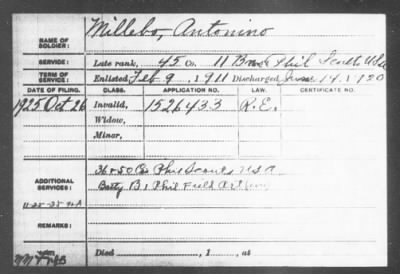 NAME OF SOLDIER: Millebo, Antonino
SERVICE: Late rank, 45 Co. 11 Phil Scouts USA
TERM OF SERVICE: Enlisted Feb 9, 1911 Discharged June 14, 1920
DATE OF FILING. CLASS. APPLICATION NO. LAW. CERTIFICATE NO.
1925 Oct 26 Invalid, 1526433 R.E.
Widow,
Minor,
ADDITIONAL SERVICES: 36 & 50 Co Phil Scouts USA
Batty B 1 Phil Field Art
REMARKS:
Died , 1 , at